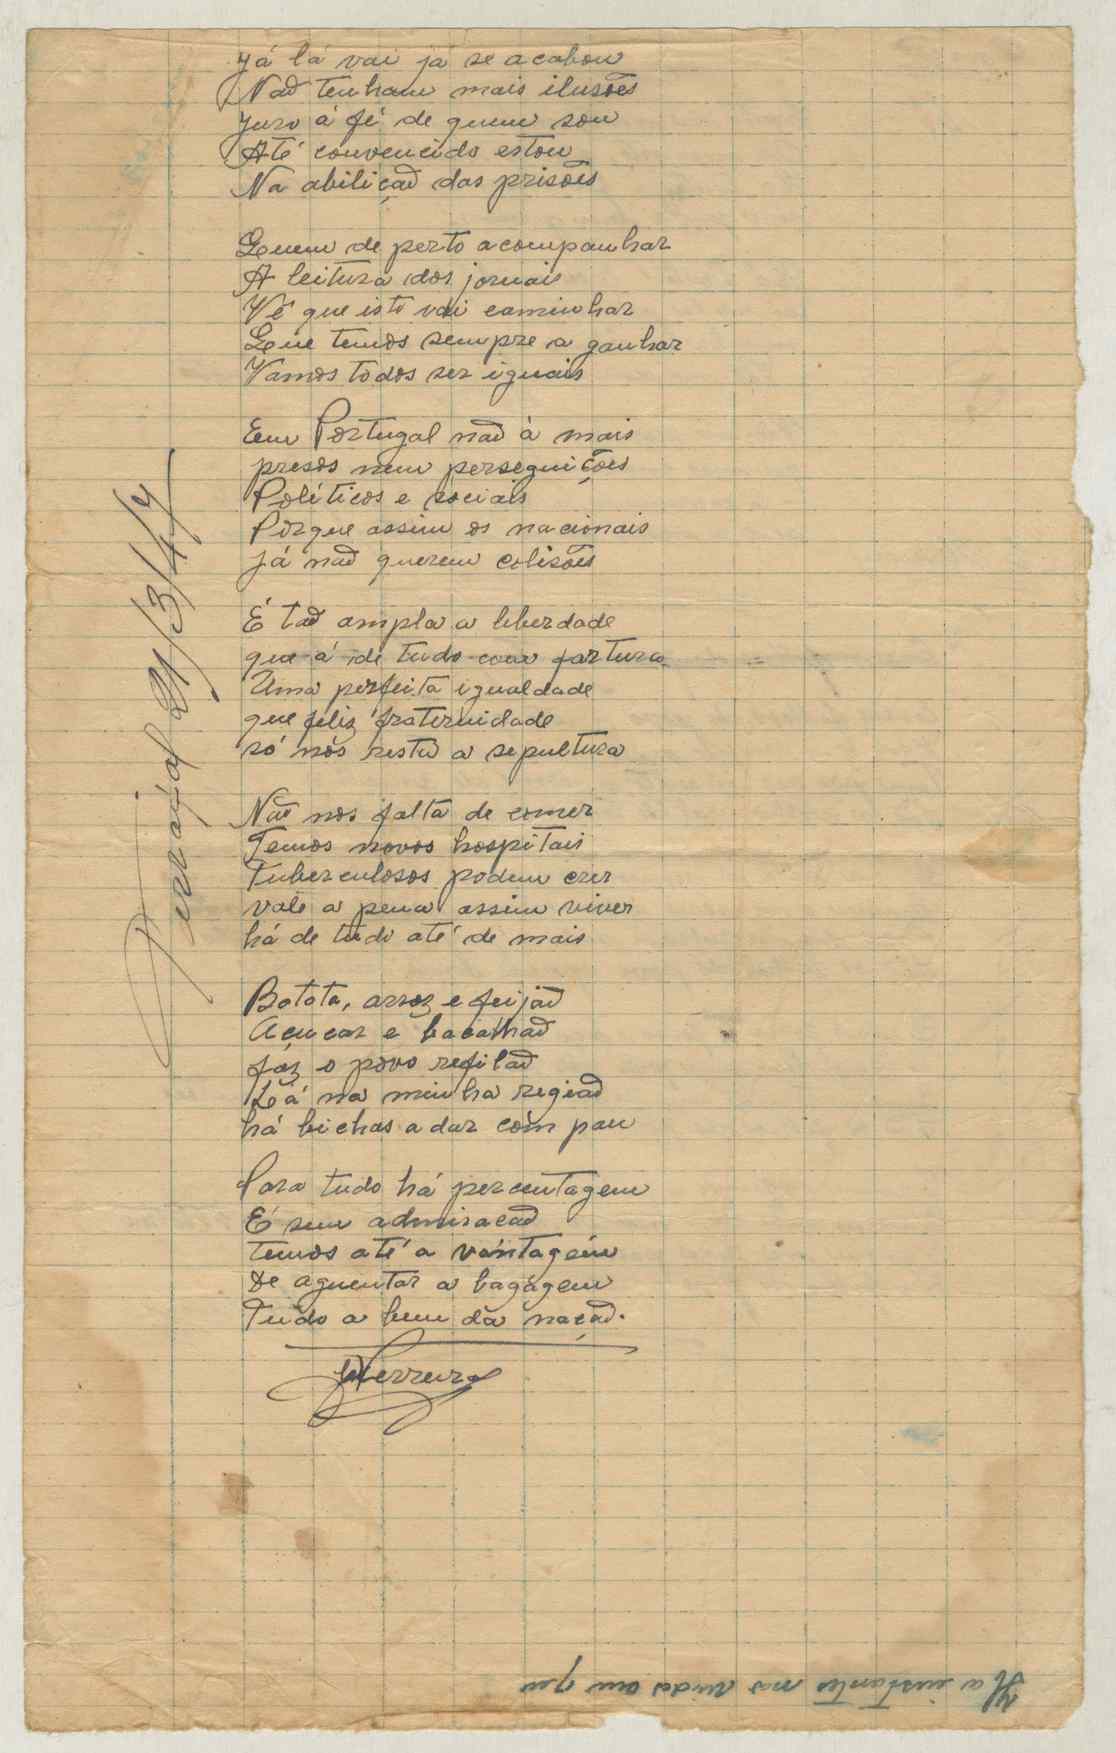 Já lá vai já se acabou
Naõ tenham mais ilusões
Juro á fé de quem sou
Até convencido estou
Na abiliçaõ das prisões
Quem de perto acompanhar
A leitura dos jornais
Vê que isto vai caminhar
Que temos sempre a ganhar
Vamos todos ser iguais
Em Portugal naõ à mais
presos nem perseguições
Políticos e sociais
Porque assim os nacionais
já naõ querem colisões
É taõ ampla a liberdade
que á de tudo com fartura
Uma perfeita igualdade
que feliz fraternidade
só nós resta a sepultura
Não nos falta de comer
Temos novos hospitais
Tuberculosos podem crer
vale a pena assim viver
há de tudo até de mais
Batata, arroz e feijaõ
Açucar e bacalhaõ
fáz o povo refilaõ
Lá na minha regiaõ
há bichas a dar com pau
Para tudo há percentagem
E sem admiracaõ
temos até a vántagém
De aguentar a bagágem
Tudo a bem da naçaõ.
Ferreira
Tarrafal 21/3/47
Há instantes na vida em que